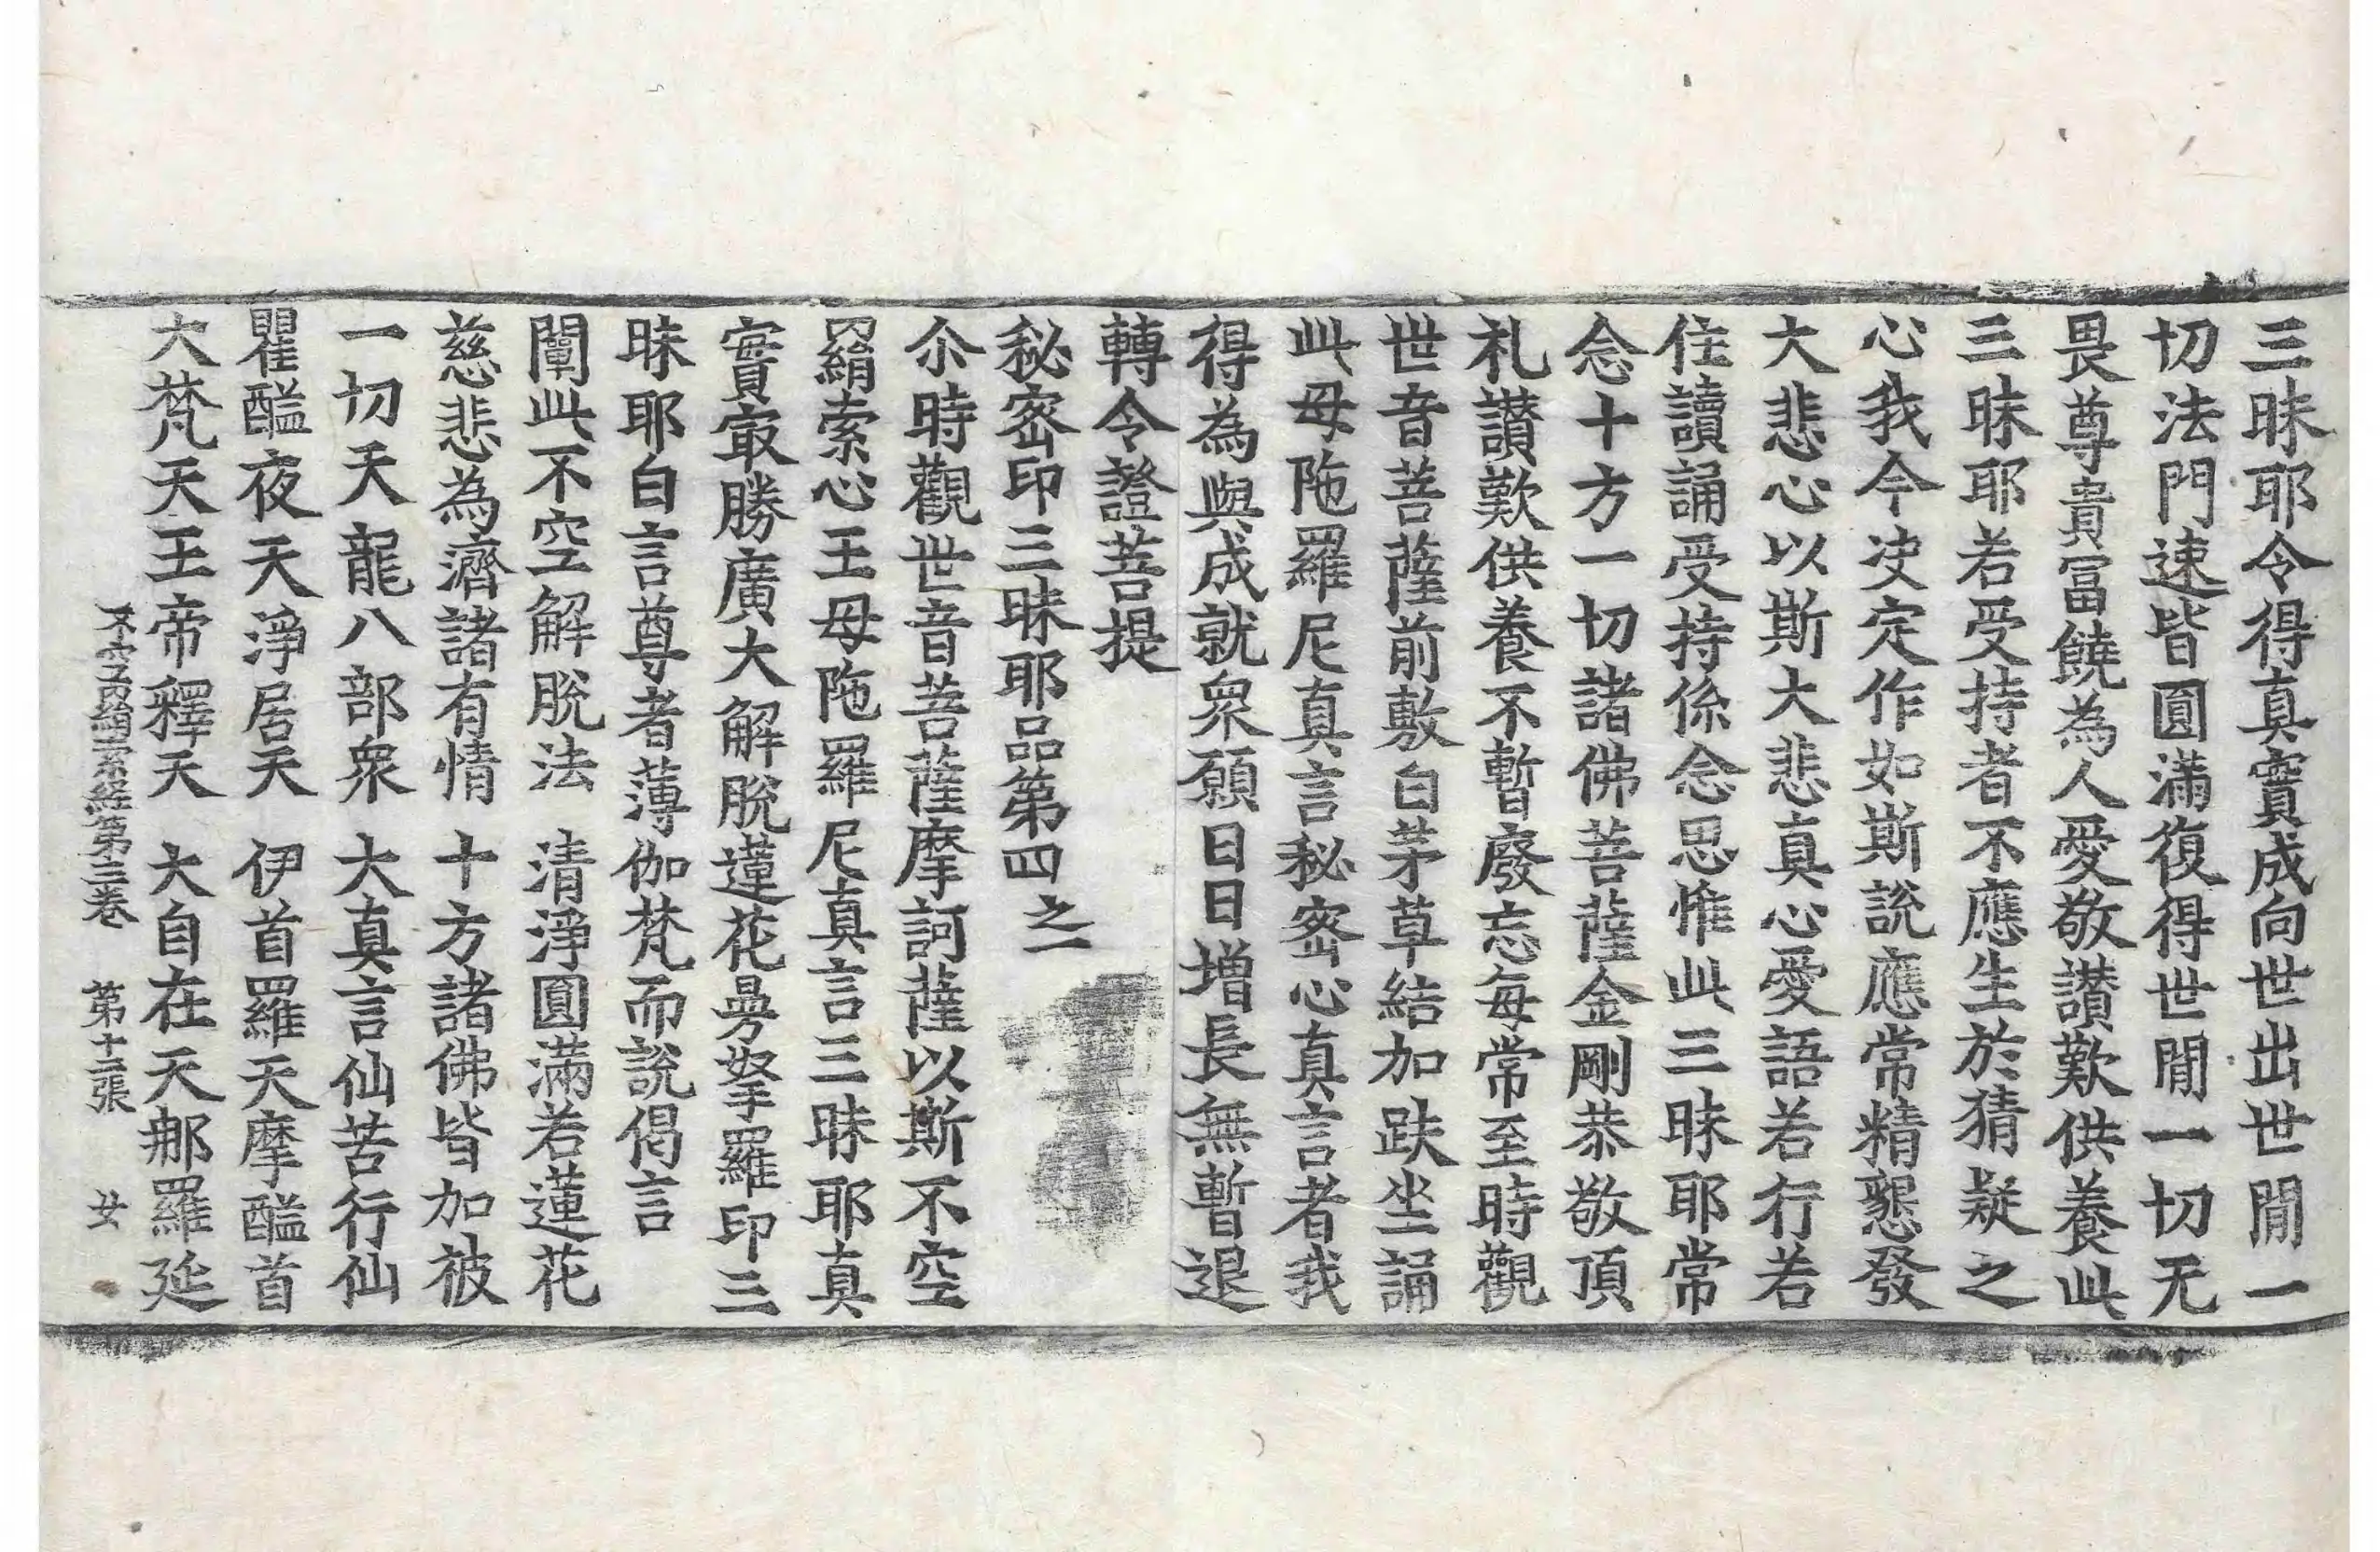 三昧耶令得真實成向世出世閒一
切法門速皆圓滿復得世閒一切无
畏尊貴冨饒為人愛敬讃歎供養此
三昧耶若受持者不應生於猜疑之
心我今決定作如斯說應常精懇發
大悲心以斯大悲真心愛語若行若
住讀誦受持係念思惟此三昧耶常
念十方一切諸佛菩薩金剛恭敬頂
礼讃歎供養不暫廢忘每常至時觀
世音菩薩前敷白茅草結加趺坐誦
此母陁羅尼真言秘密心真言者我
得為與成就衆願日日增長無暫退
轉令證菩提
秘密印三昧耶品第四之一
尒時觀世音菩薩摩訶薩以斯不空
羂索心王母陁羅尼真言三昧耶真
實㝡勝廣大解脫蓮花曼拏羅印三
昧耶白言尊者薄伽梵而說偈言
闡此不空解脫法　清淨圓滿若蓮花
慈悲為濟諸有情　十方諸佛皆加被
一切天龍八部衆　大真言仙苦行仙
瞿醯夜天淨居天　伊首羅天摩醯首
大梵天王帝釋天　大自在天那羅延
不空羂索經第三卷　第十二張　女